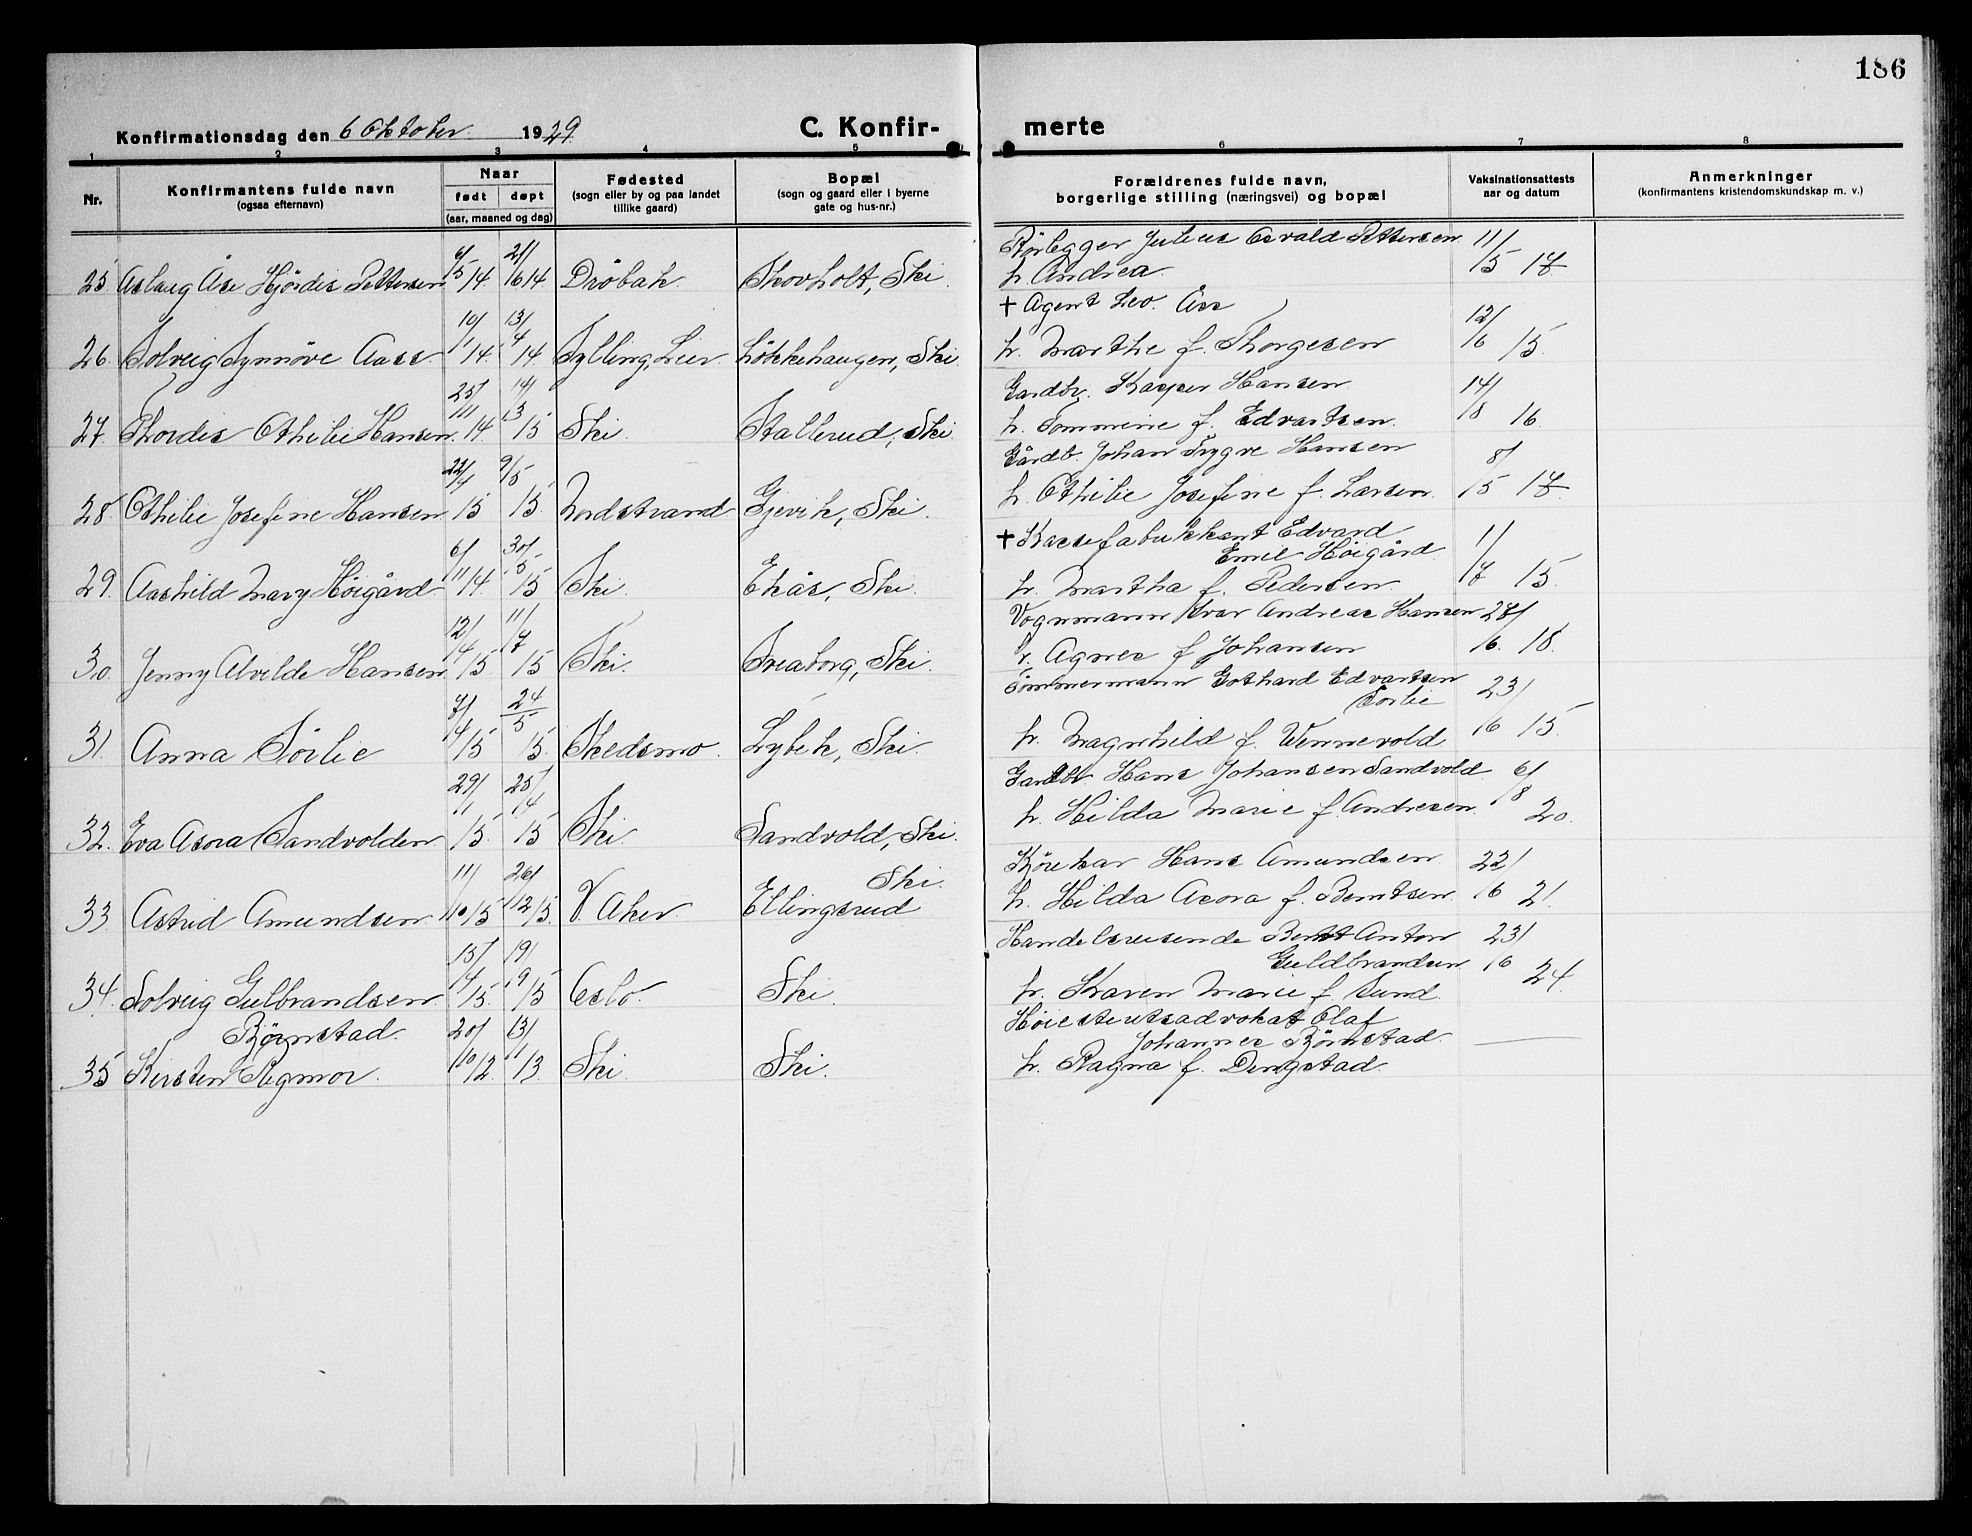 186
Konfirmationsdag den 6 Oktober 1929
C. Konfir-
merte
1 2 3 4 5 6 7 8
Nr.
Konfirmantens fulde navn
(ogsaa efternavn)
Naar
født døpt
(aar, maaned og dag)
Fødested
(sogn eller by og paa landet
tillike gaard)
Bopæl
(sogn og gaard eller i byerne
gate og hus-nr.)
Forældrenes fulde navn,
borgerlige stilling (næringsvei) og bopæl
Vaksinationsattests
aar og datum
Anmerkninger
(konfirmantens kristendomskundskap m. v.)
25 Aslaug Åse Hjördis Pettersen 14 21/6 14 Dröbak Skovholt, Ski
Rörlegger Julius Osvald Pettersen 11/
h. Andrea 5 17
26. Solveig Synnöve Aass 10/1 14. 13/4 14 Sylling, Lier Lökkehaugen, Ski
† Agent Leo. Åss 12/
h. Marthe f. Thorgesen 6 15.
27. Thordis Othilie Hansen 25/11 14 14/3 15 Ski. Stallerud, Ski.
Gardbr. Kasper Hansen 14/
h. Tommine f. Edvartsen. 8 16.
28. Othilie Josefine Hansen 22/4 15 9/5 15 Nordstrand Gjevik, Ski.
Gårdb. Johan Trygve Hansen 8/
h. Othilie Josefine f. Larsen. 5 17
29. Aashild Mary Höigård 6/11 14. 30/5 15 Ski. Ekås, Ski.
† Kassefabrikkant Edvard
Emil Höigård 1/
h. Martha f. Pedersen. 7 15.
30. Jenny Alvilde Hansen 12/4 15 11/7 15 Ski. Sveaborg, Ski.
Vognmann Ivar Andreas Hansen 27/
h. Agnes f Johansen 6. 18.
31. Anna Sörlie 7/4 15 24/5 15. Skedsmo. Lybek, Ski.
Tömmermann Gothard Edvartsen
Sorlie 23/
h. Magnhild f. Wennevold 6 15.
32. Eva Asora Sandvolden 29/1 15. 25/4 15 Ski. Sandvold, Ski.
Gardbr Hans Johansen Sandvold 6/
h. Hilda Marie f. Andresen. 8 20.
33 Astrid Amundsen 11/10 15 26/12 15. V. Aker. Ski.
Ellingsrud
Kjörekar Hans Amundsen 22/
h. Hilda Asora f. Berntsen. 6 21.
34. Solveig Gulbrandsen 15/4 15. 19/9 15 Oslo. Ski.
Handelsreisende Bernt Anton 23/
Guldbrandsen 6
h. Karen Marie f. Sund. 24.
Börnstad. 20/10 12. 13/1 13.
35 Kirsten Regmor. Ski. Ski.
Höiesterettsadvokat Olaf
Johannes Börnstad.
h. Ragna f. Dengstad.